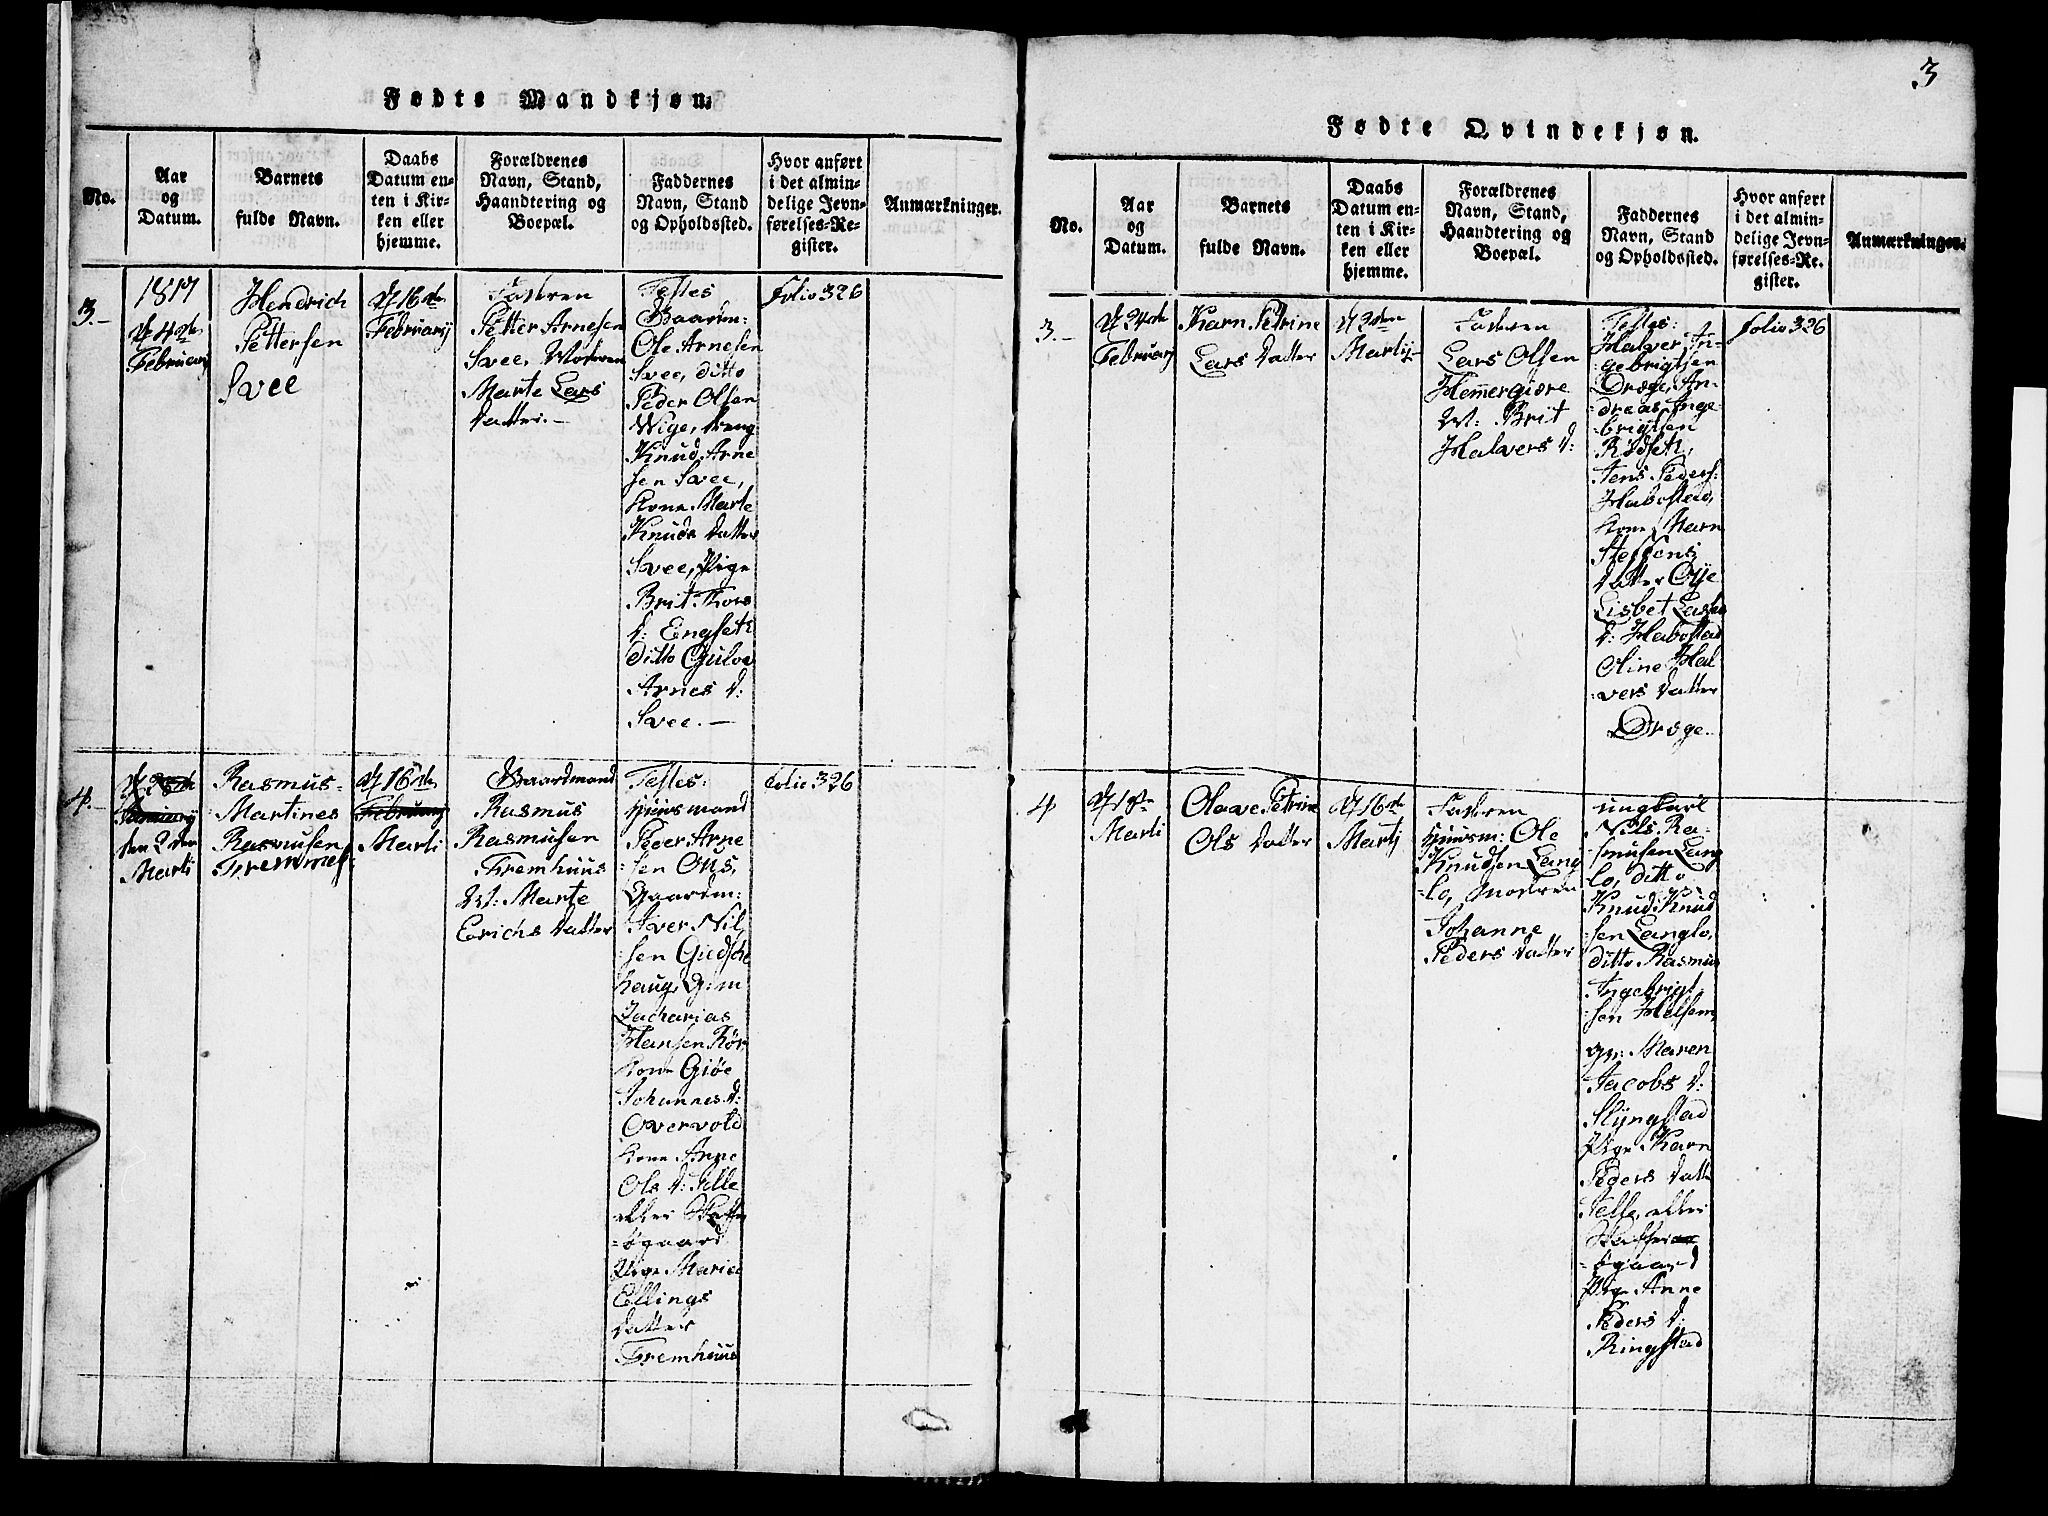 Fødte Mandkjøn.
No.
Aar
og
Datum.
Barnets
fulde Navn.
Daabs
Datum en-
ten i Kir-
ken eller
hjemme.
Forældrenes
Navn, Stand,
Haandtering og
Boepæl.
Faddernes
Navn, Stand
og Opholdssted.
Hvor anført
i det almin-
delige Jevn-
førelses-Re-
gister.
Anmærkninger.
3.-
1817
d 4de
Februarij
Hendrich
Pettersen
Svee
d 16de
Februarij
Faderen
Petter Arnesen
Svee, Moderen
Marte Lars
datter.-
Testes
Gaardm:
Ole Arnesen
Svee, ditto
Peder Olsen
Wige, dreng
Knud Arne
sen Svee,
kone Marte
Knuds datter
Svee, Pige
Brit Thors
d: Engset
ditto Gulve
Arnes d:
Svee.-
folio 326
4.-
den 2den
Marti
Rasmus-
Martines
Rasmusen
Fremmer
d 16de
Februarij
Marti
Gaardmand
Rasmus
Rasmusen
Fremhuus
M: Marte
Erichs datter
Testes:
Huusmand
Peder Arne
sen Ous,
Gaardm:
Iver Nil
sen Giedske
haug, Gm
Zacharias
Hansen Rør
kone Giøe
Johannes d:
Overvold
kone Anne
Ols d: Velle
eller
-øgaard
Pige Marie
Ellings
datter
Fremhuus
folio 326
3
Fødte Qvindekjøn.
No.
Aar
og
Datum.
Barnets
fulde Navn.
Daabs
Datum en-
ten i Kir-
ken eller
hjemme.
Forældrenes
Navn, Stand,
Haandtering og
Boepæl.
Faddernes
Navn, Stand
og Opholdssted.
Hvor anført
i det almin-
delige Jevn-
førelses-Re-
gister.
Anmærkninger.
3.-
d 24de
Februarj
Karn Petrine
Lars datter
d 2den
Martij
Faderen
Lars Olsen
Hemmergiøre
M: Brit
Halvers d:
Testes:
Halver In-
gebrigtsen
Drøge, An-
dreas Inge-
brigtsen
Rødset,
Jens Peders:
Habostad,
kone Marn
Steffens
datter Øye
Lisbet Lars
d: Habostad
Oline Hal
vers datter
Drøge.
folio 326
4
d 1ste
Marti
Olave Petrine
Ols datter
d 16de
Martij
Faderen
Huusm: Ole
Knudsen Lang
-lo, Moderen
Johanne
Peders datter
ungkarl
Nils Ra-
smusen Lang
lo, ditto
Knud Knud
-sen Langlo,
ditto Rasmus
Ingebrigt
-sen Helsem,
Maren
Jacobs d:
Slyngstad
Pige Karn
Peders datt
Velle, eller
-øgaard
Pige Anne
Peders d:
Ringstad